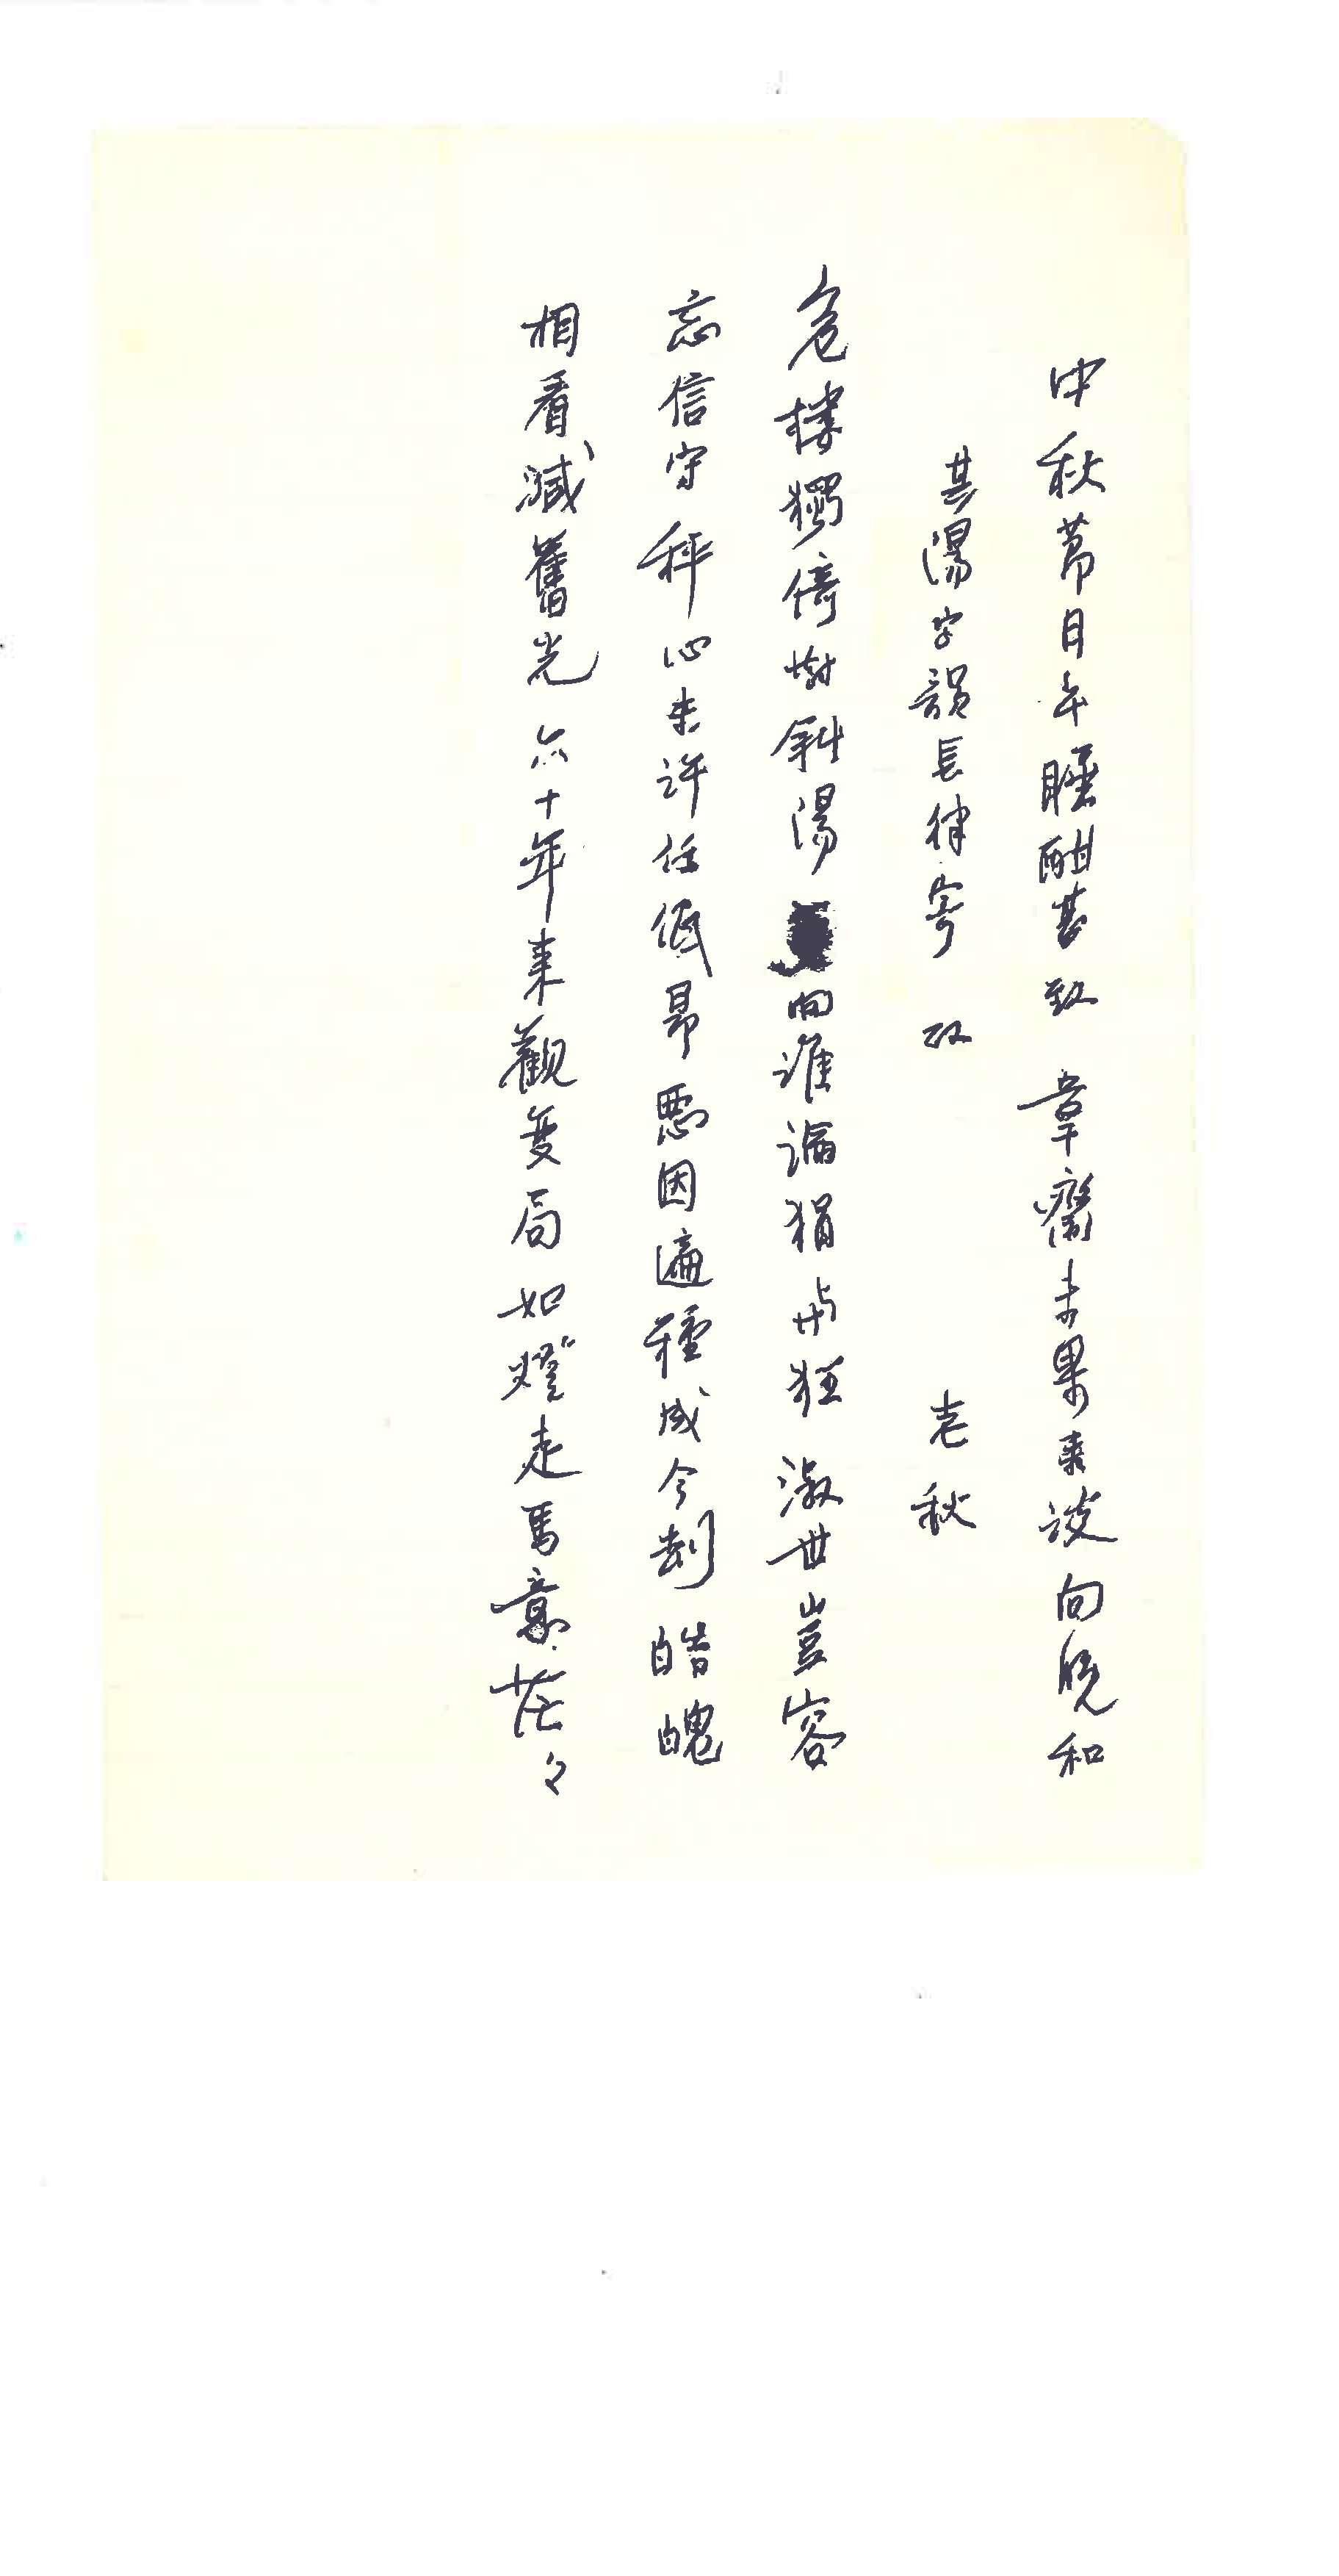 中秋節日午睡酣甚致 章齋未果来談向晚和
其陽字韻長律寄 政 老秋
危樓獨倚對斜陽 向誰論狷與狂 淑世豈容
忘信守 秤心未許任低昂 惡因遍種成今劫 皓魄
相看減舊光 六十年来觀變局 如燈走馬意茫々